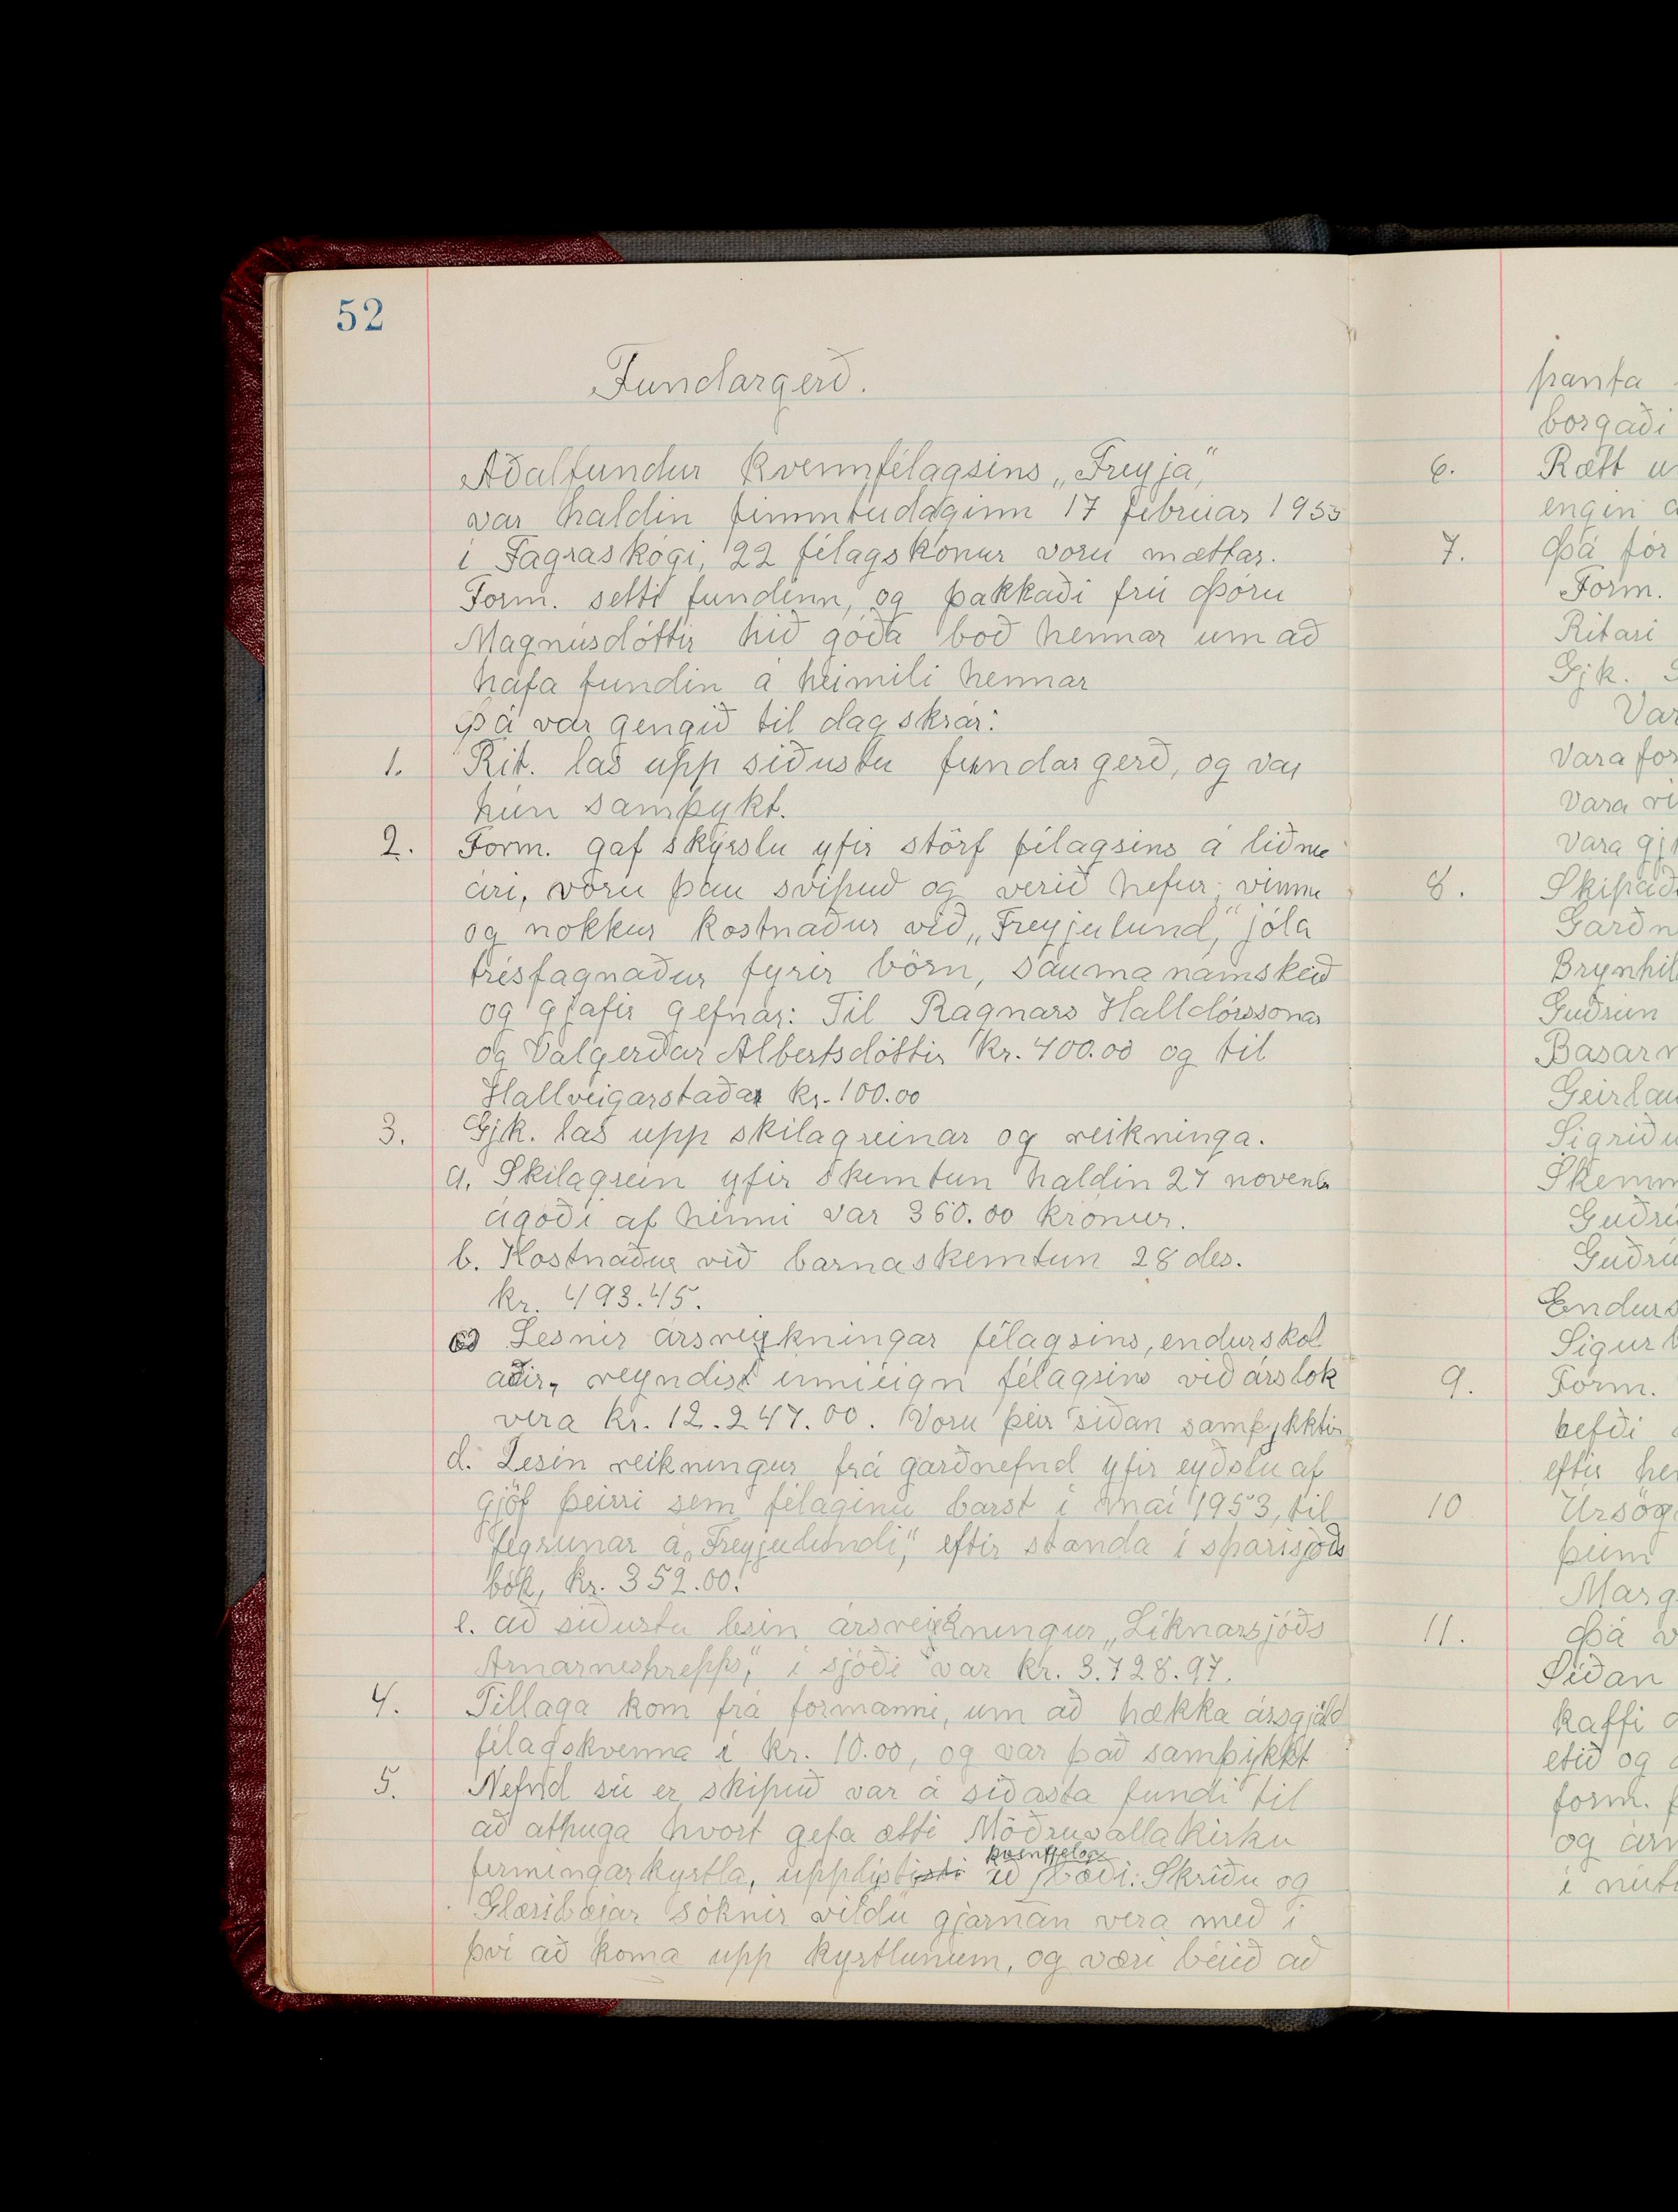 52
Fundargerð.
Aðalfundur Kvennfélagsins „Freyja"
var haldin fimmtudaginn 17 februar 1955
í Fagraskógi, 22 félagskonur voru mættar.
Form. setti fundinn, og þakkaði frú Þóru
Magnúsdóttir hið góða boð hennar um að
hafa fundin á heimili hennar
Þá var gengið til dagskrár:
1. Rit. las upp siðustu fundargerð, og var
hún samþykt.
2. Form. gaf skýrslu yfir störf félagsins á liðnu
ári, voru þau svipuð og verið hefur: vinna
og nokkur kostnaður við „Freyjulund," jóla
trésfagnaður fyrir börn, sauma námskeið
og gjafir gefnar: Til Ragnars Halldórssonar
og Valgerðar Albertsdóttir kr. 400.00 og til
Hallveigarstaðar kr. 100.00
3. Gjk. las upp skilagreinar og reikninga.
a. Skilagrein yfir skemtun haldin 27 novemb
ágóði af henni var 360.00 krónur.
b. Kostnaður við barnaskemtun 28 des.
kr. 493.45.
c Lesnir ársreikningar félagsins, endurskoð
aðir, reyndist inneign félagsins við árslok
vera kr. 12.247.00. Voru þeir síðan samþykktir
d. Lesin reikningur frá garðnefnd yfir eyðslu af
gjöf þeirri sem félaginu barst í mai 1953, til
fegrunar á „Freyjulundi," eftir standa í sparisjóðs
bók, kr. 352.00.
e. að siðustu lesin ársreikningur „Líknarsjóðs
Arnarneshrepps," í sjóði var kr. 3.728.97.
4. Tillaga kom frá formanni, um að hækka ársgjald
félagskvenna í kr. 10.00, og var það samþykkt
5. Nefnd sú er skipuð var á síðasta fundi til
að athuga hvort gefa ætti Möðruvallakirku
kvenffélog
fermingarkyrtla, upplýsti að bæði: Skriðu og
Glæsibæjar sóknir vildu gjarnan vera með í
því að koma upp kyrtlunum, og væri búið að
panta
borgaði
6. Rætt
engin
7. Þá fór
Form.
Ritari
Gjk.
Var
Vara for
Vara
Vara gj
8. Skipað
Garðn
Brynhil
Guðrún
Basar
Geirlau
Sigriðu
Skemm
Guðrú
Guðrú
Endurs
Sigur
9. Form.
hefði
eftir he
10 Úrsög
þeim
Marg
11. Þá
Síðan
kaffi
etið og
form.
og árn
í